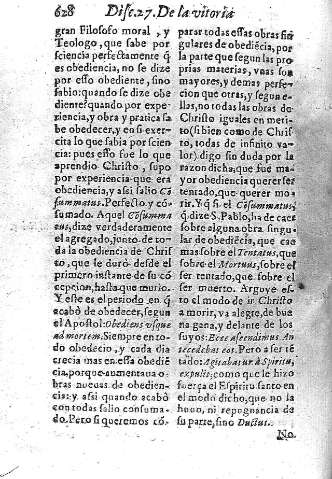 628 Disc.27. De la vitoria
gran Filosofo moral, y
Teologo, que sabe por
sciencia perfectamente q̃
es obediencia, no se dize
por esso obediente, sino
sabio: quando se dize obe
diente? quando por expe-
riencia, y obra y pratica sa
be obedecer, y en si exer-
cita lo que sabia por scien
cia: pues esso fue lo que
aprendio Christo, supo
por experiencia que era
obediencia, y assi salio Cõ
summatus. Perfecto, y cõ-
sumado. Aquel Cõsumma
tus, dize verdaderamente
el agregado, junto de to-
da la obediencia de Chris
to, que le durò desde el
primero instante de su cõ
cepcion, hasta que murio.
Y este es el periodo en q̃
acabò de obedecer, segun
el Apostol: Obediens usque
ad mortem. Siempre en to-
do obedecio, y cada dia
crecia mas en essa obediẽ
cia, porque aumentaua o-
bras nueuas de obedien-
cia: y assi quando acabò
con todas salio consuma-
do. Pero si queremos cõ-
parar todas essas obras sin
gulares de obediẽcia, por
la parte que segun las pro
prias materias, vnas son
mayores, y demas perfe-
cion que otras, y segun e-
llas, no todas las obras de
Christo iguales en meri-
to (si bien como de Chris
to, todas de infinito va-
lor) digo sin duda por la
razon dicha, que fue ma-
yor obediencia querer ser
tentado, que querer mo-
rir. Y q̃ si el Cõsummatus,
q̃ dize S. Pablo, ha de caer
sobre alguna obra singu-
lar de obediẽcia, que cae
mas sobre el Tentatus, que
sobre el Mortuus, sobre el
ser tentado, que sobre el
ser muerto. Arguye es-
to el modo de ir Christo
a morir, va alegre, de bue
na gana, y delante de los
suyos: Ecce ascendimus An
tecedebat eos. Pero a ser tẽ
tado: Agitabatur à Spiritu,
expulit; como que le hizo
fuerça el Espiritu santo en
el modo dicho, que no la
huuo, ni repugnancia de
su parte, sino Ductus.
No